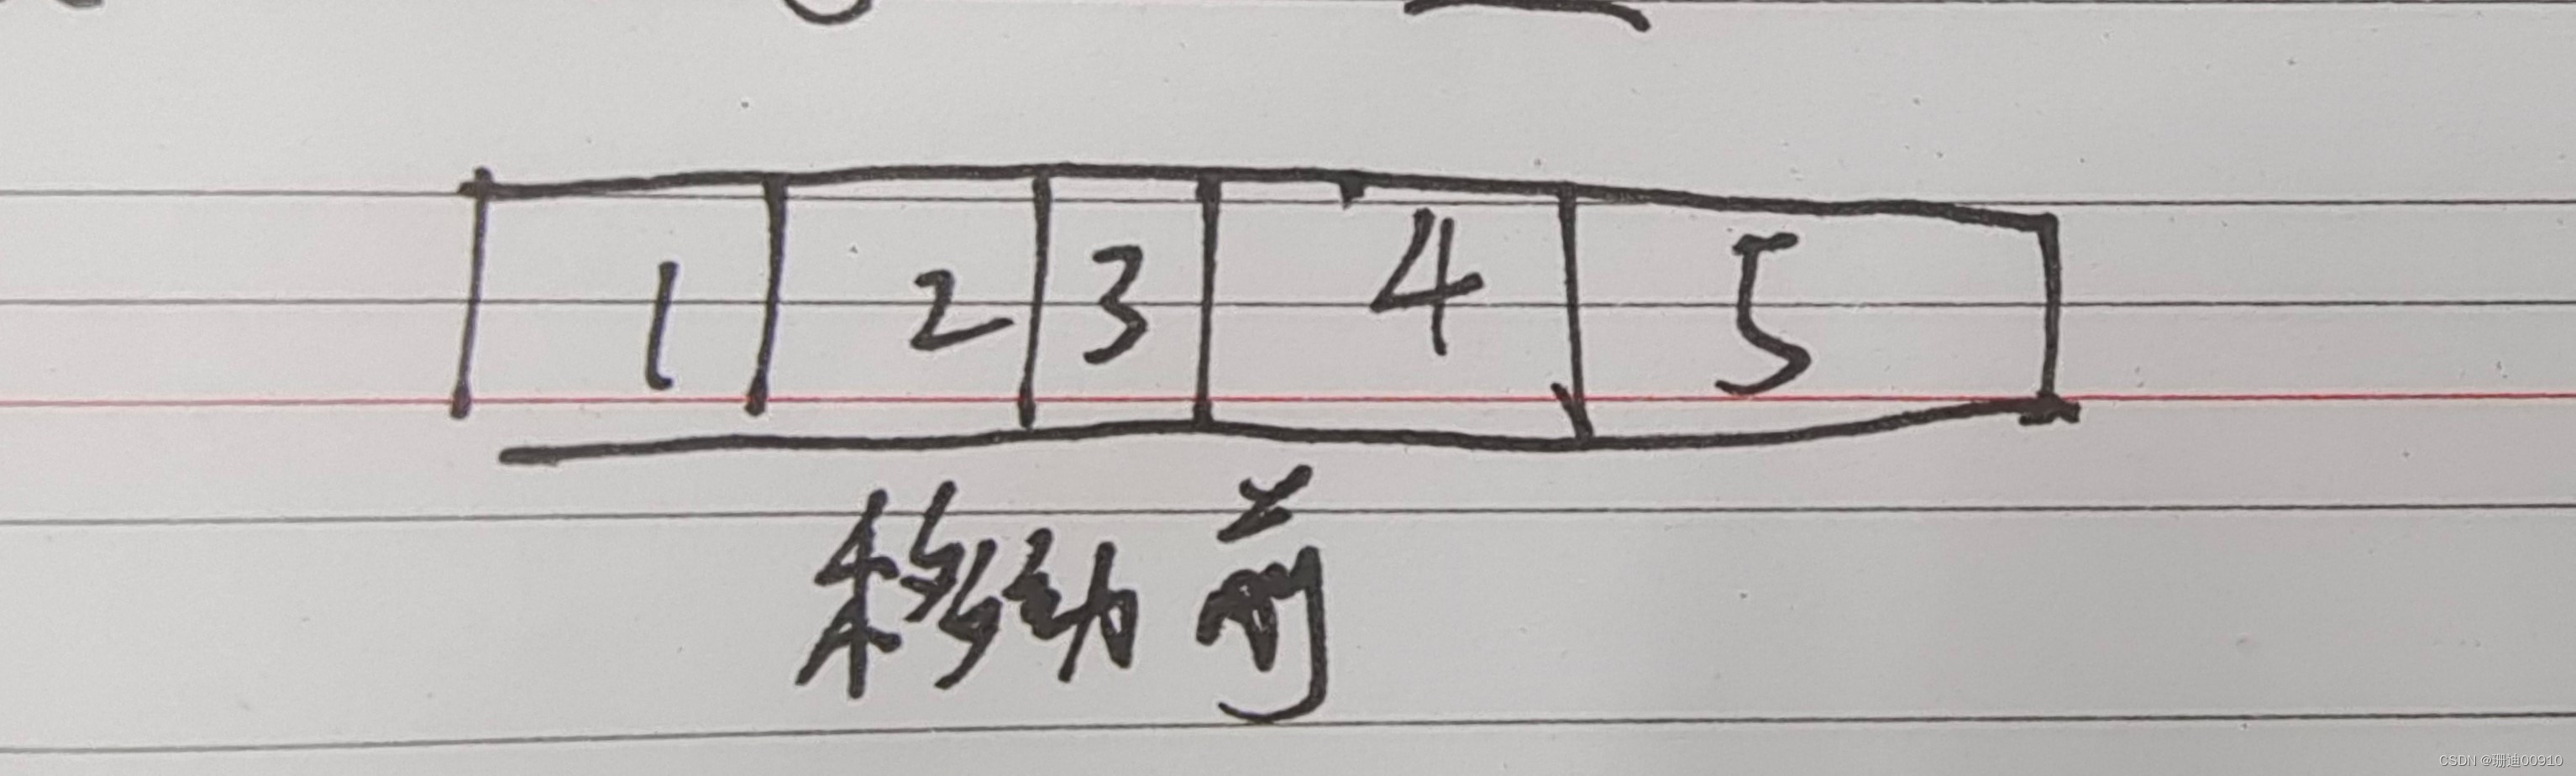 1 2 3 4 5
移动前
CSDN @珊迪00910